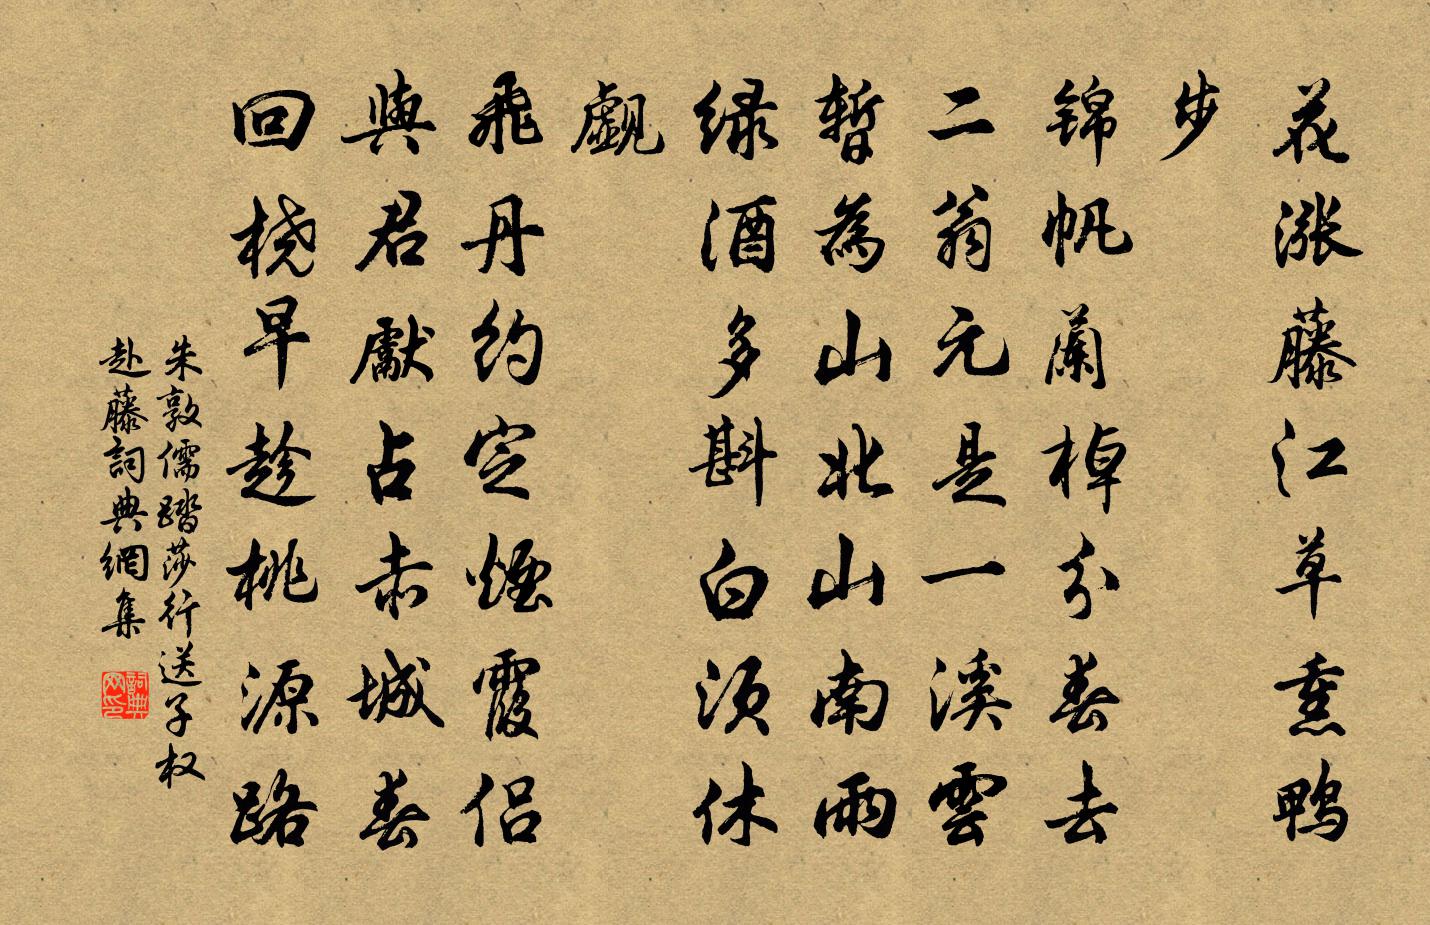 花涨藤江草熏鸭
步
锦帆蘭棹分春去
二翁元是一溪雲
暫為山北山南雨
绿酒多斟白须休
觑
飛丹约定煙霞侣
與君獻占赤城春
回桡早趁桃源路
朱敦儒踏莎行送子权
赴藤詞典網集
詞典网印